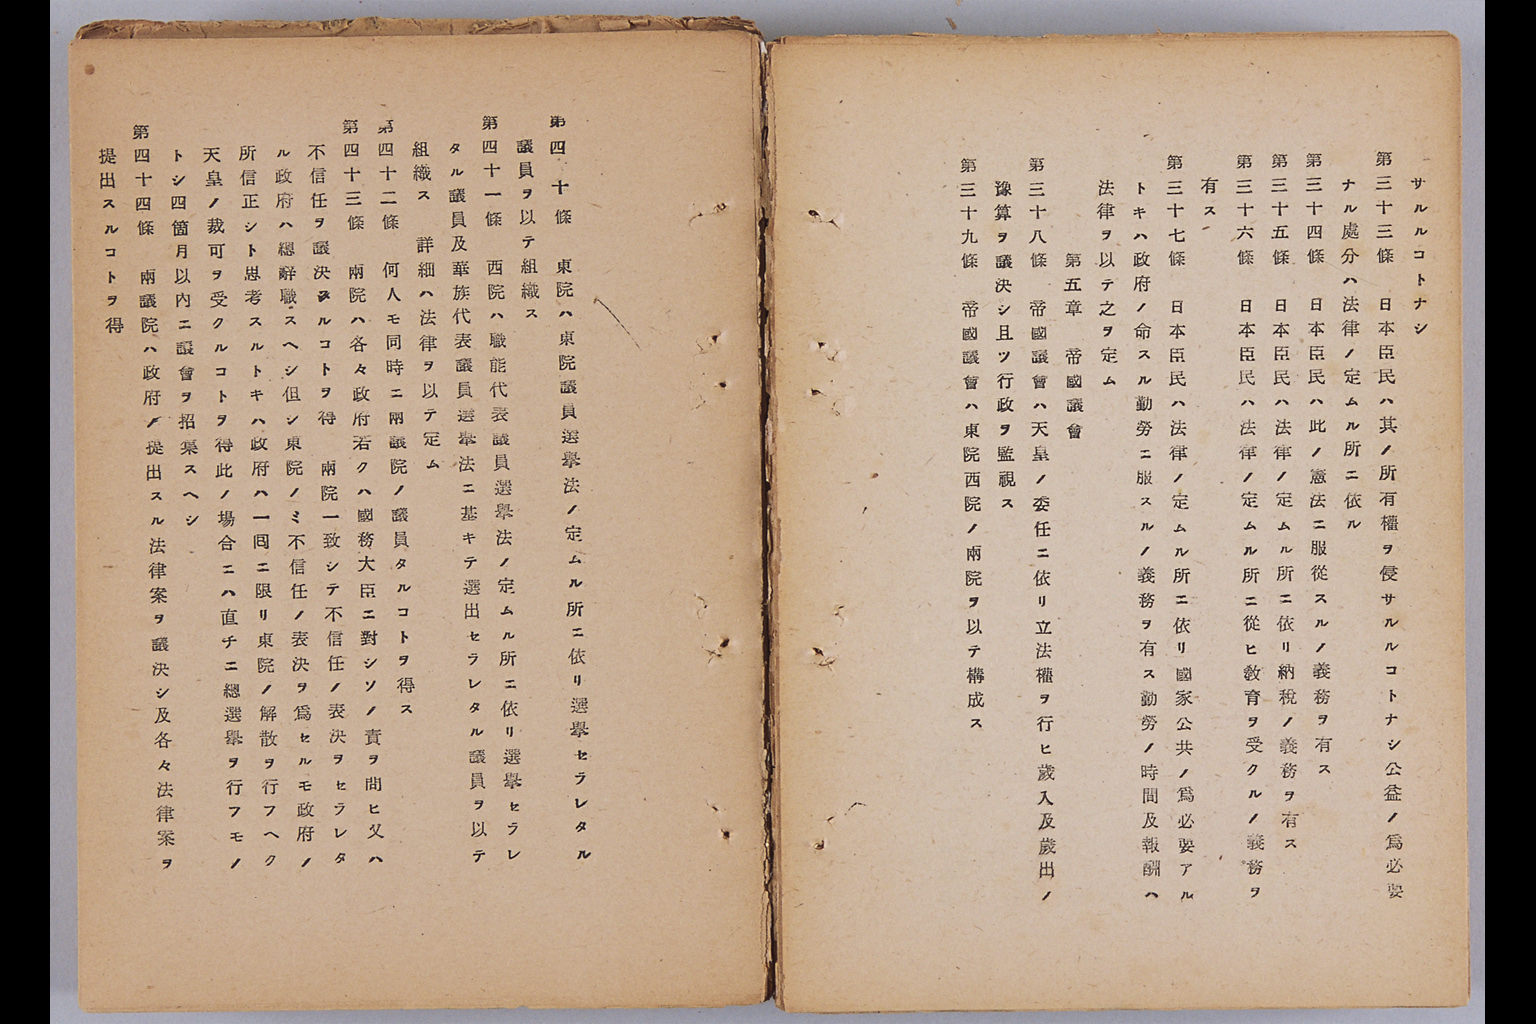 サルルコトナシ
第三十三條　日本臣民ハ其ノ所有權ヲ侵サルルコトナシ公益ノ爲必要
ナル處分ハ法律ノ定ムル所ニ依ル
第三十四條　日本臣民ハ此ノ憲法ニ服從スルノ義務ヲ有ス
第三十五條　日本臣民ハ法律ノ定ムル所ニ依リ納稅ノ義務ヲ有ス
第三十六條　日本臣民ハ法律ノ定ムル所ニ從ヒ敎育ヲ受クルノ義務ヲ
有ス
第三十七條　日本臣民ハ法律ノ定ムル所ニ依リ國家公共ノ爲必要アル
トキハ政府ノ命スル勤勞ニ服スルノ義務ヲ有ス勤勞ノ時間及報酬ハ
法律ヲ以テ之ヲ定ム
第五章　帝國議會
第三十八條　帝國議會ハ天皇ノ委任ニ依リ立法權ヲ行ヒ歲入及歲出ノ
豫算ヲ議決シ且ツ行政ヲ監視ス
第三十九條　帝國議會ハ東院西院ノ兩院ヲ以テ構成ス
第四十條　東院ハ東院議員選擧法ノ定ムル所ニ依リ選擧セラレタル
議員ヲ以テ組織ス
第四十一條　西院ハ職能代表議員選擧法ノ定ムル所ニ依リ選擧セラレ
タル議員及華族代表議員選擧法ニ基キテ選出セラレタル議員ヲ以テ
組織ス　詳細ハ法律ヲ以テ定ム
第四十二條　何人モ同時ニ兩議院ノ議員タルコトヲ得ス
第四十三條　兩院ハ各々政府若クハ國務大臣ニ對シソノ責ヲ問ヒ又ハ
不信任ヲ議決スルコトヲ得　兩院一致シテ不信任ノ表決ヲセラレタ
ル政府ハ總辭職スヘシ但シ東院ノミ不信任ノ表決ヲ爲セルモ政府ノ
所信正シト思考スルトキハ政府ハ一囘ニ限リ東院ノ解散ヲ行フヘク
天皇ノ裁可ヲ受クルコトヲ得此ノ場合ニハ直チニ總選擧ヲ行フモノ
トシ四箇月以內ニ議會ヲ招集スヘシ
第四十四條　兩議院ハ政府ノ提出スル法律案ヲ議決シ及各々法律案ヲ
提出スルコトヲ得